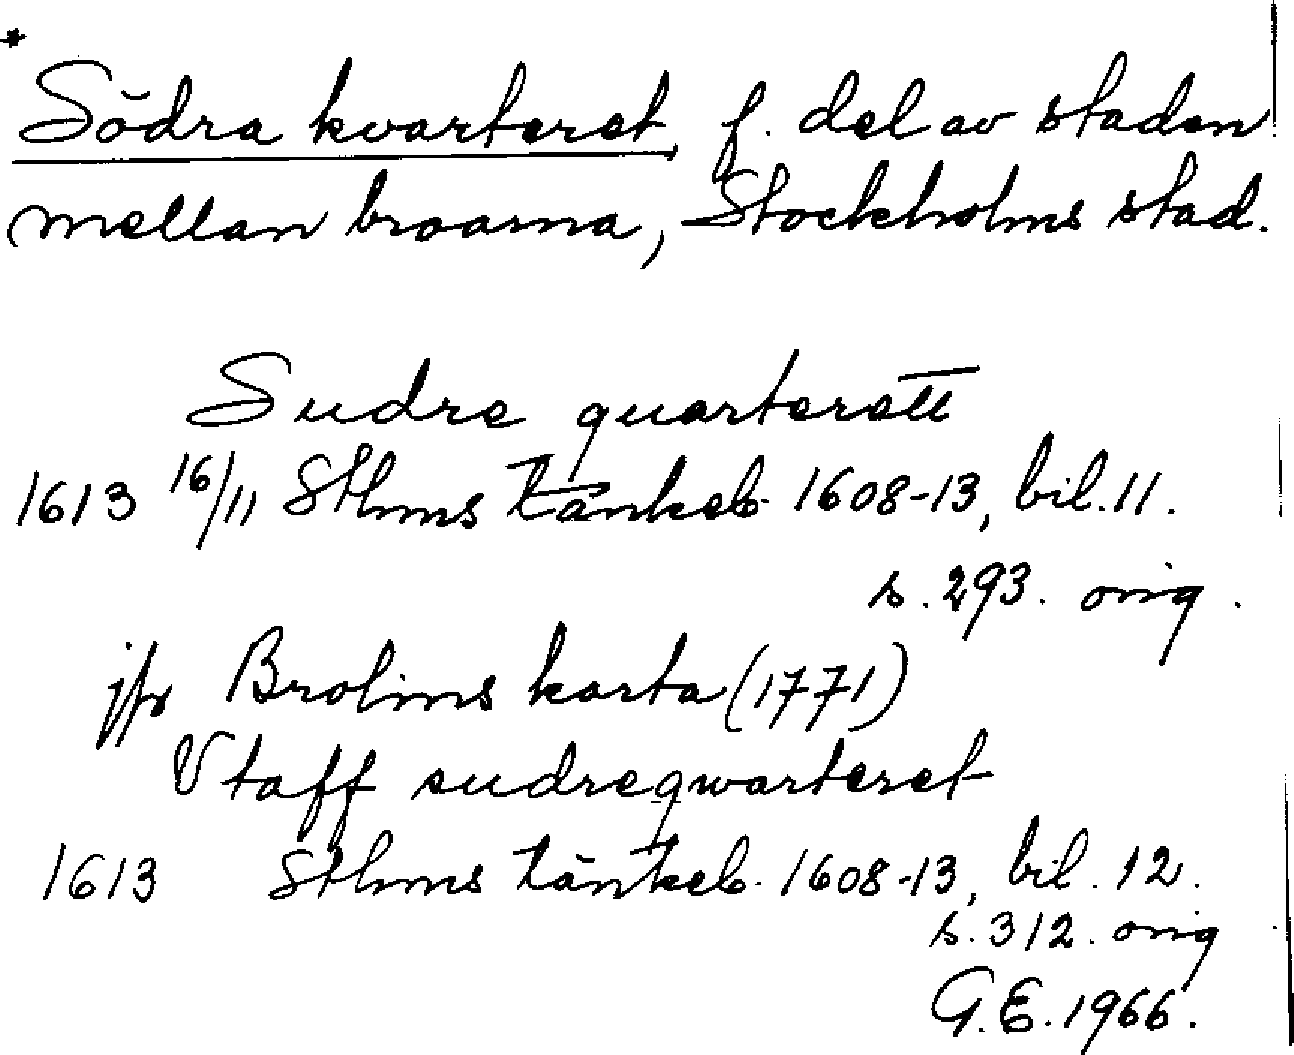 *
Södra kvarteret, f. del av staden
mellan broarna, Stockholms stad.
Sudre quarterett
1613 16/11 Sthms tänkeb. 1608-13, bil. 11.
s. 293. orig.
jfr Brolins karta (1771)
Vtaff sudreqwarteret
1613 Sthms tänkeb. 1608-13, bil. 12.
s. 312. orig
G.E. 1966.